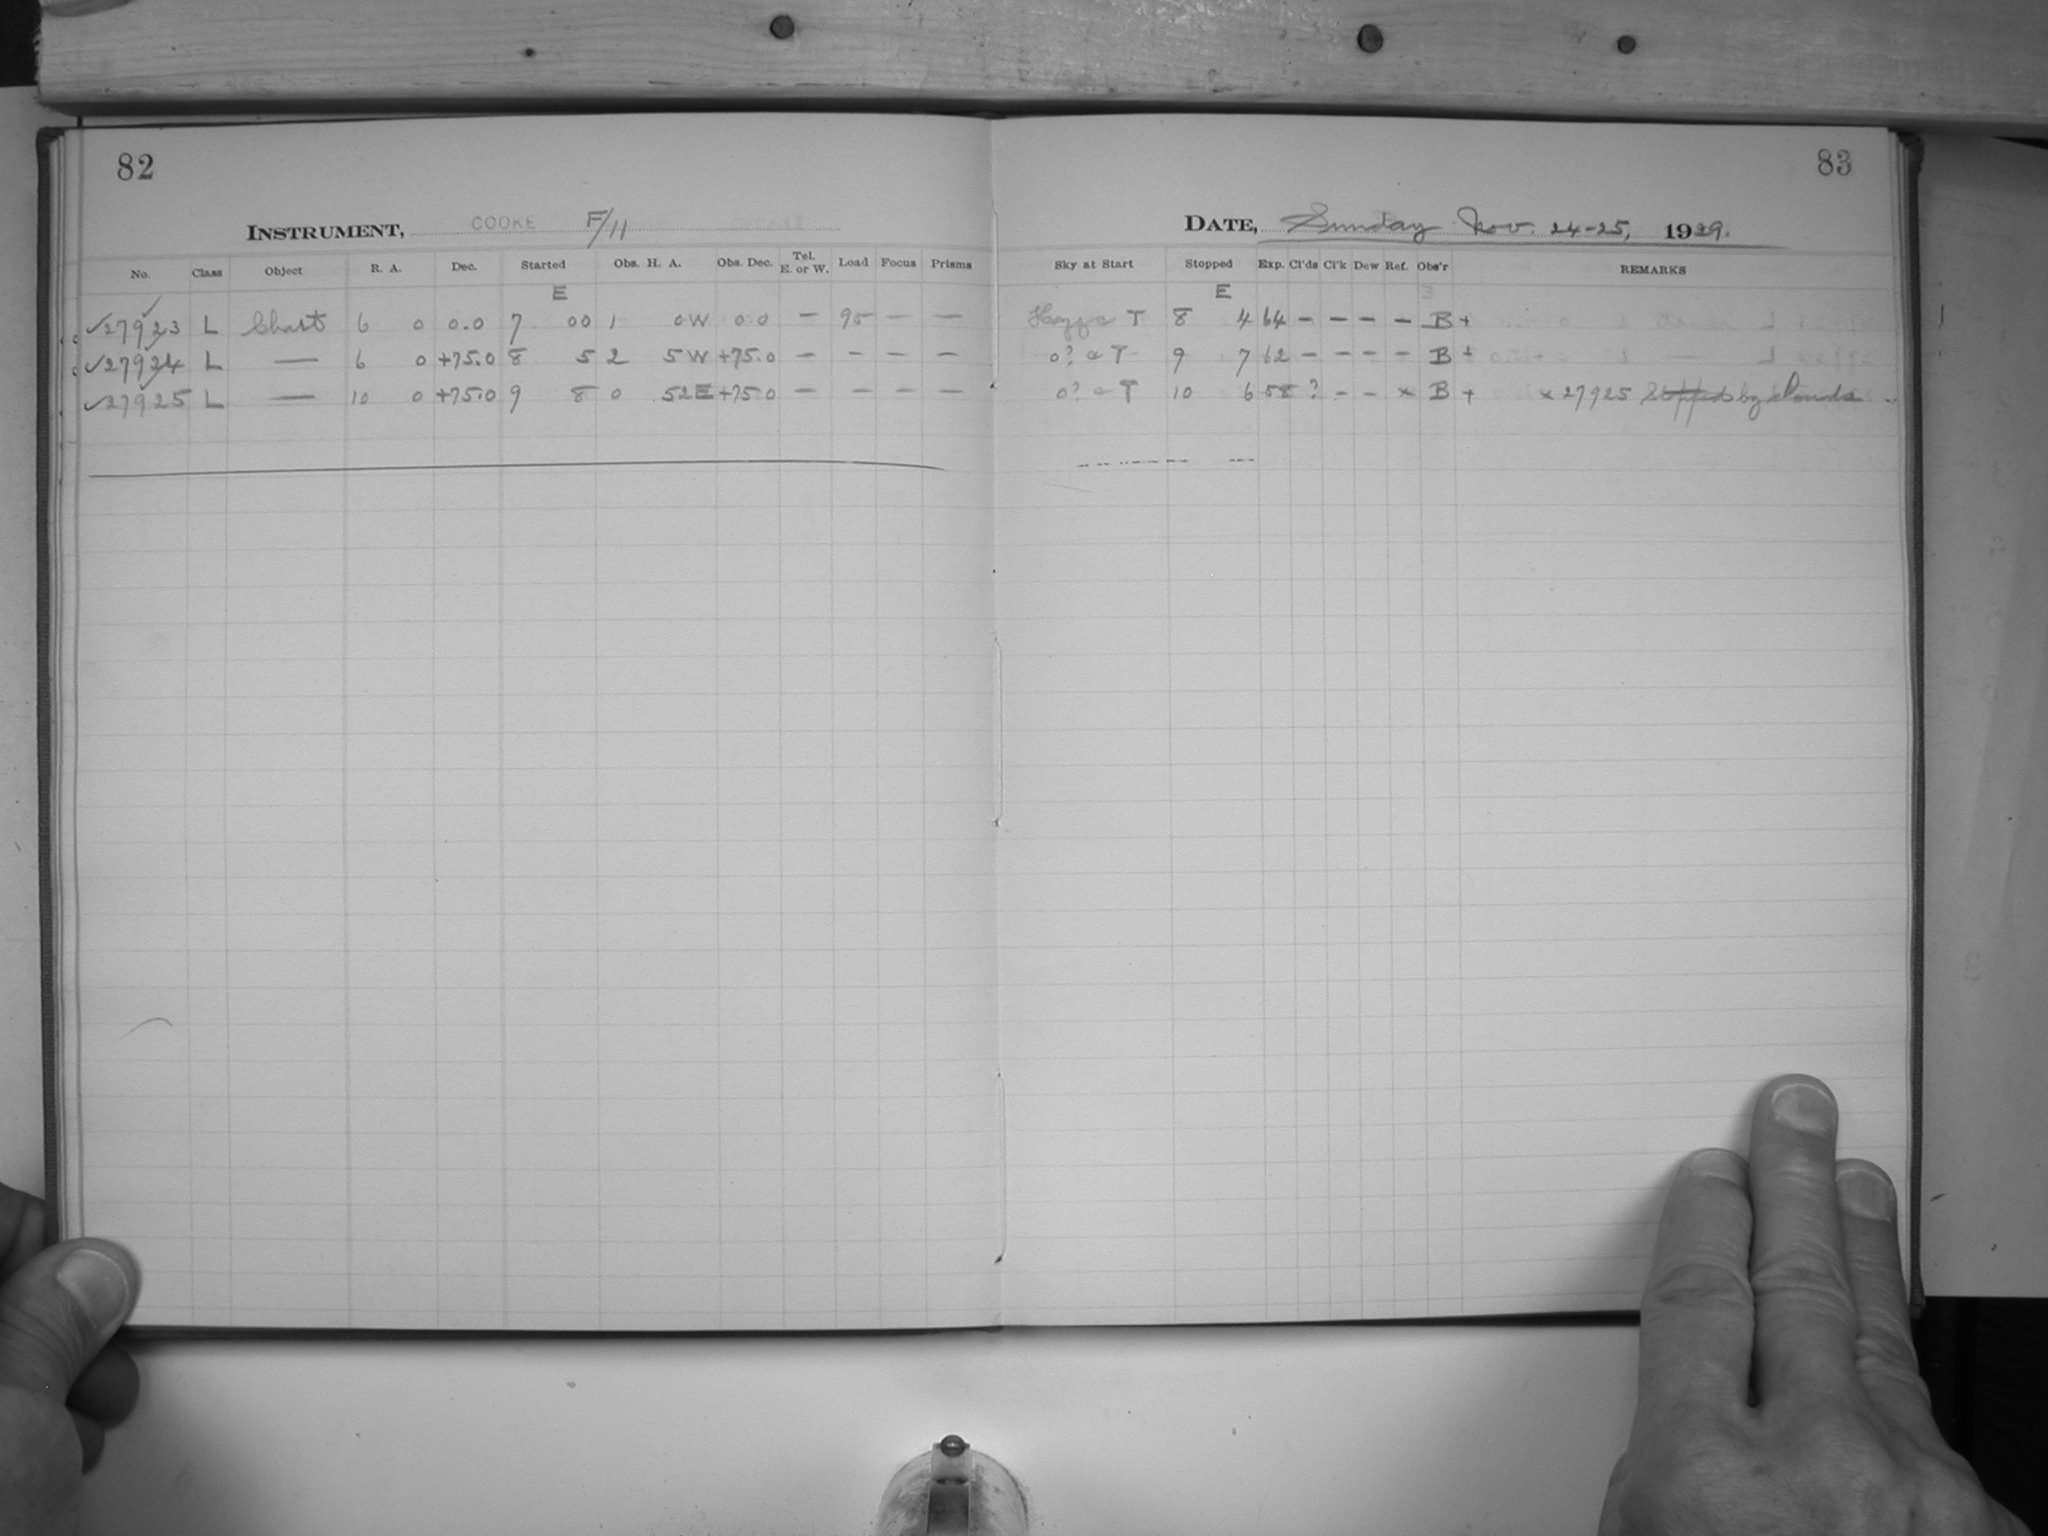 82
INSTRUMENT, COOKE F/11
No. Class Object R. A. Dec. Started Obs. H. A. Obs. Dec. Tel. E. or W. Load Focus Prisms
E
✓27923 L Chart 6 0 0.0 7 00 1 0W 0.0 — 95 — —
✓27924 L — 6 0 +75.0 8 5 2 5W +75.0 — — — —
✓27925 L — 10 0 +75.0 9 8 0 52E +75.0 — — — —
83
DATE, Sunday Nov. 24-25, 1929.
Sky at Start Stopped Exp. Cl'ds Cl'k Dew Ref. Obs'r REMARKS
E
Hazy c T 8 4 64 — — — — B+
0? c T 9 7 62 — — — — B+
0? c T 10 6 58 ? — — x B+ x 27925 Stopped by clouds